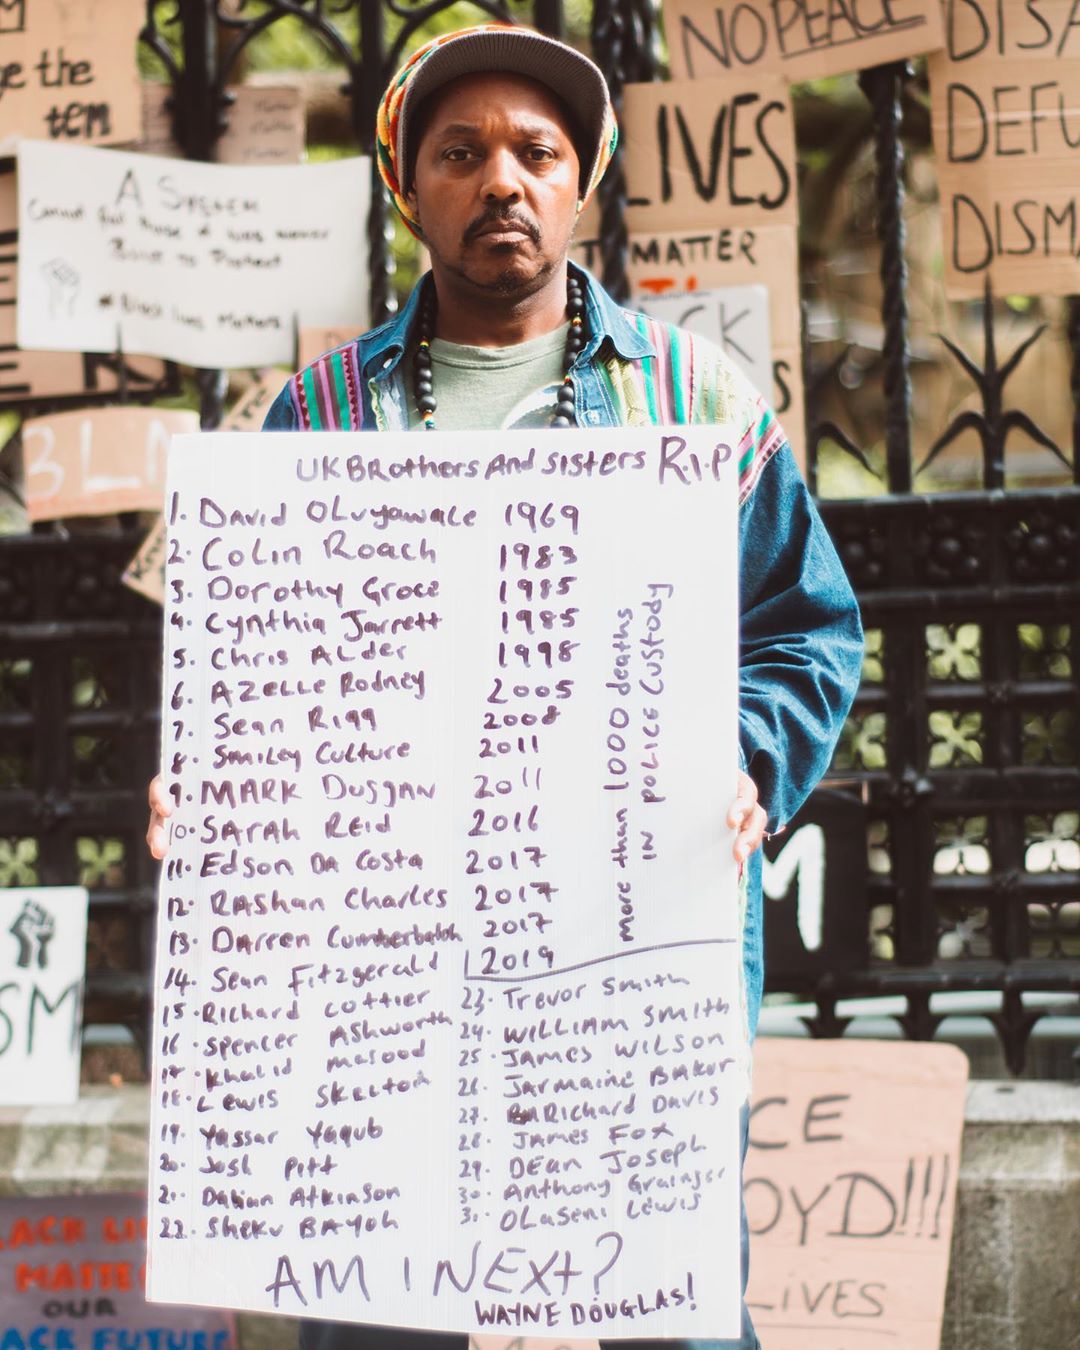 ge the
tem
A SYSTEM
Cannot fail those it was never
Built to Protect
#Black Lives Matters
NO PEACE
LIVES
MATTER
CK
S
DISA
DEFU
DISM
BLM
UK BROthers And sisters R.I.P
1. David OLuyawale 1969
2. Colin Roach 1983
3. Dorothy Groce 1985
4. Cynthia Jarrett 1985
5. Chris ALder 1998
6. AZELLE Rodney 2005
7. Sean Rigg 2008
8. Smiley Culture 2011
9. MARK Duggan 2011
10. SARAh REid 2016
11. Edson DA Costa 2017
12. RAShan Charles 2017
13. Darren Cumberbatch 2017
14. Sean Fitzgerald 2019
15. Richard Cottier
16. Spencer Ashworth
17. Khalid masood
18. Lewis Skelton
19. Yassar Yaqub
20. Josh Pitt
21. Dalian Atkinson
22. Sheku BAyoh
more than 1000 deaths
in police custody
23. Trevor Smith
24. WILLIAM Smith
25. JAMES WILSON
26. Jarmaine Baker
27. Richard Davis
28. JAMES FOX
29. DEan Joseph
30. Anthony Grainger
31. OLaseni Lewis
AM I NEXt?
WAYNE DOUGLAS!
M
SM
CE
OYD!!!
LIVES
LACK LI
MATTE
OUR
ACK FUTURE